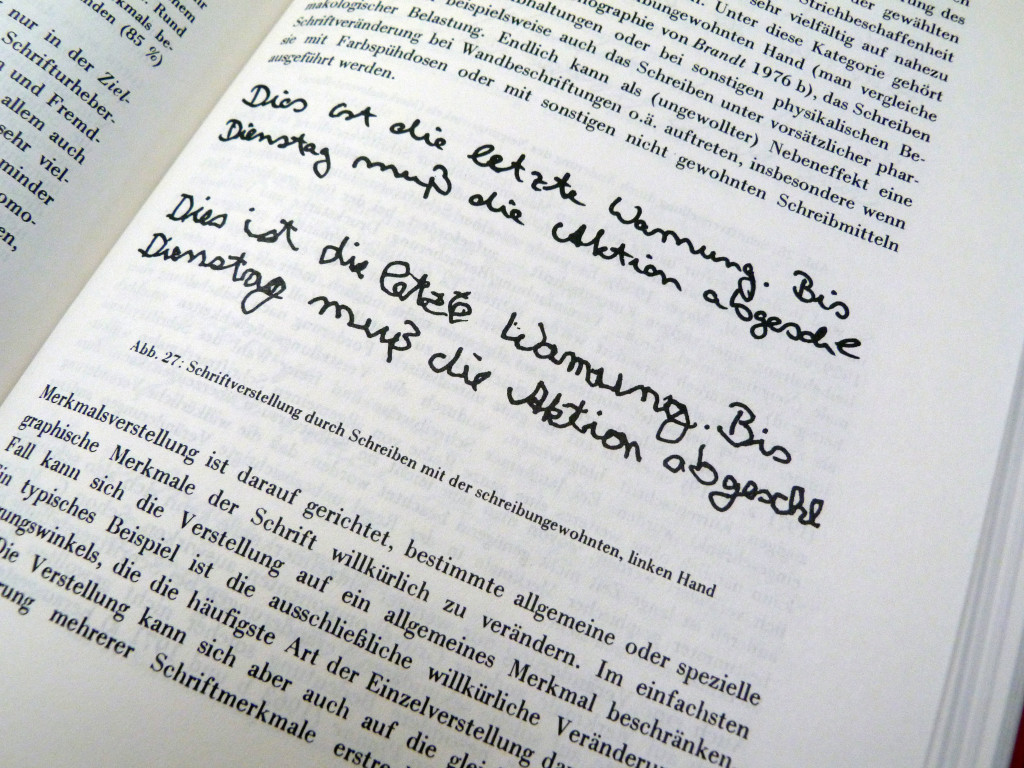 hem
Rund
kmals be-
nden (85 %)
nur in der Ziel-
Schrifturheber-
und Fremd-
allem auch
sehr viel-
minder
omo-
en,
des
der gewählten
Strichbeschaffenheit
sehr vielfältig auf nahezu
Unter diese Kategorie gehört
ungewohnten Hand (man vergleiche
ographie von Brandt 1976 b), das Schreiben
haltungen oder bei sonstigen physikalischen Be-
beispielsweise auch das Schreiben unter vorsätzlicher phar-
makologischer Belastung. Endlich kann als (ungewollter) Nebeneffekt eine
Schriftveränderung bei Wandbeschriftungen o.ä. auftreten, insbesondere wenn
sie mit Farbspühdosen oder mit sonstigen nicht gewohnten Schreibmitteln
ausgeführt werden.
Dies ist die letzte Warnung. Bis
Dienstag muß die Aktion abgesche
Dies ist die letzte Warnung. Bis
Dienstag muß die Aktion abgesche
Abb. 27: Schriftverstellung durch Schreiben mit der schreibungewohnten, linken Hand
Merkmalsverstellung ist darauf gerichtet, bestimmte allgemeine oder spezielle
graphische Merkmale der Schrift willkürlich zu verändern. Im einfachsten
Fall kann sich die Verstellung auf ein allgemeines Merkmal beschränken.
in typisches Beispiel ist die ausschließliche willkürliche Veränderu
ungswinkels, die die häufigste Art der Einzelverstellung dar
Die Verstellung kann sich aber auch auf die glei
rung mehrerer Schriftmerkmale erstre